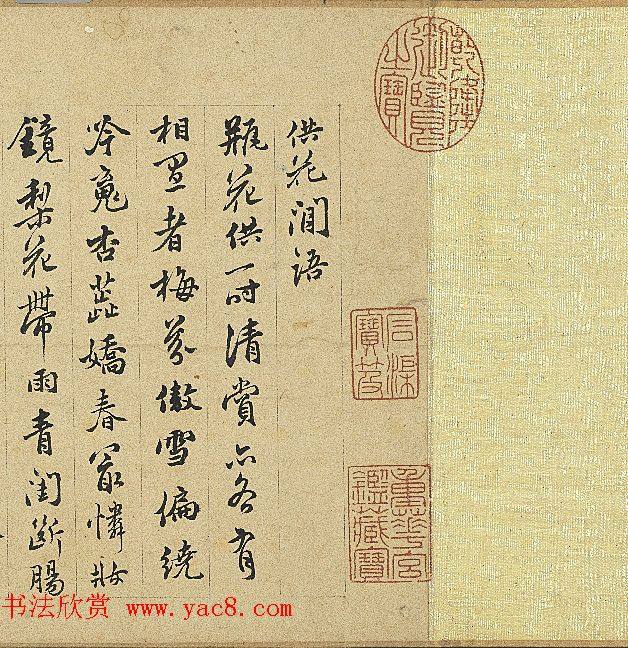 供花閒語
瓶花供一時清賞亦各有
相宜者梅芬傲雪偏繞
吟魂杏蕊嬌春最憐妝
鏡梨花帶雨青閨斷腸
乾隆御覽之寶
石渠寶笈
重華宮鑑藏寶
书法欣赏 www.yac8.com